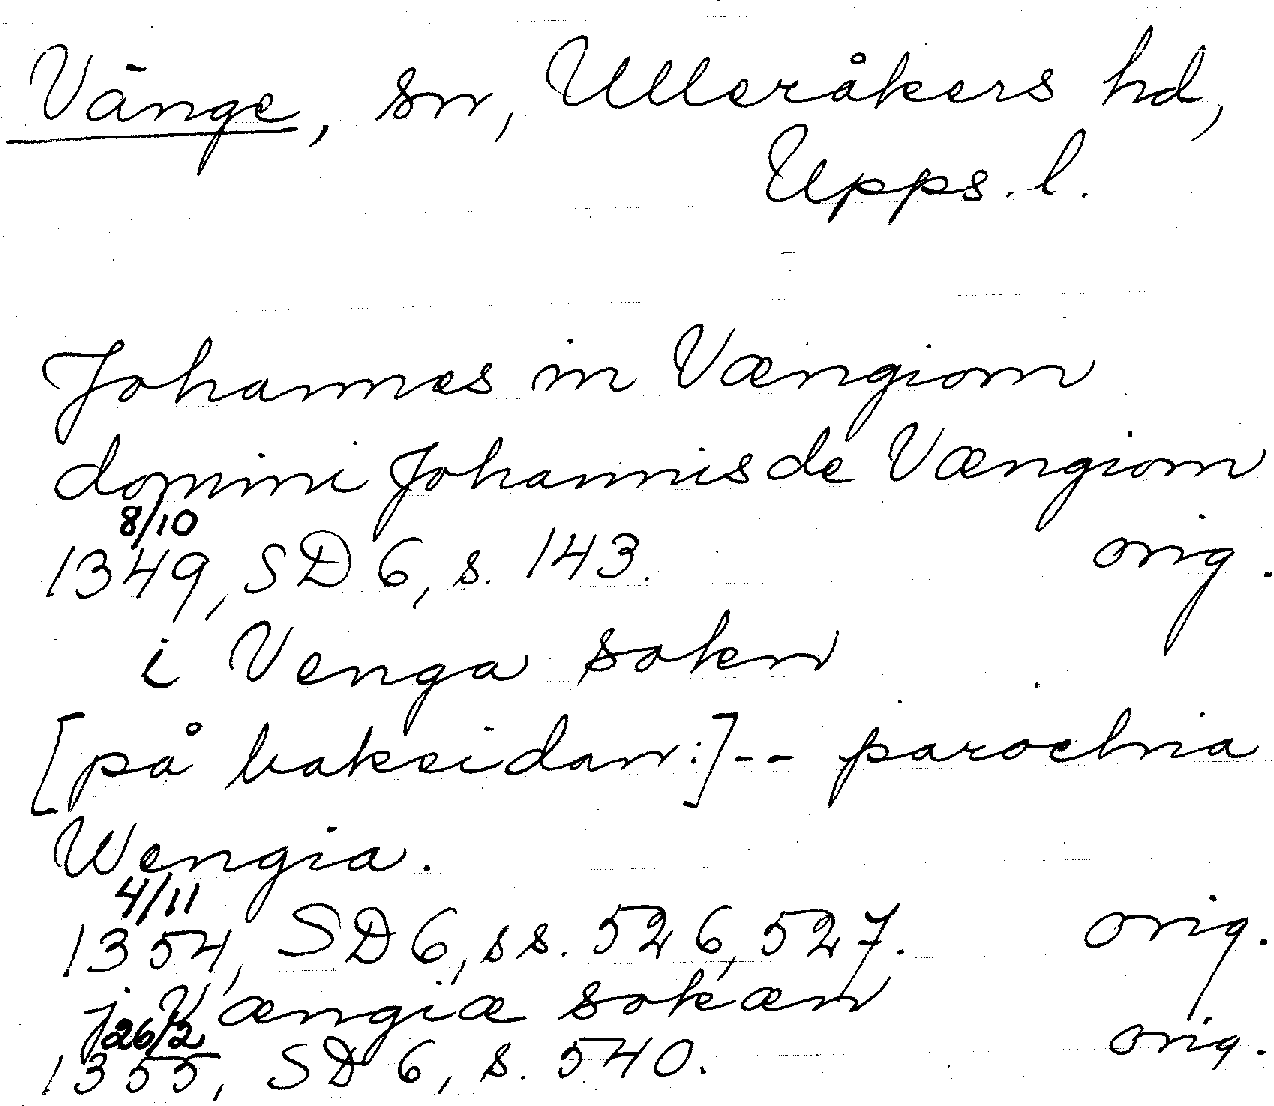 Vänge, sn, Ulleråkers hd,
Upps. l.
Johannes in Vængiom
domini Johannis de Vængiom
8/10
1349, SD 6, s. 143. orig.
i Venga sokn
[på baksidan:]-- parochia
Wengia.
4/11
1354, SD 6, ss. 526, 527. orig.
j Vængiæ sokæn
26/2
1355, SD 6, s. 540. orig.